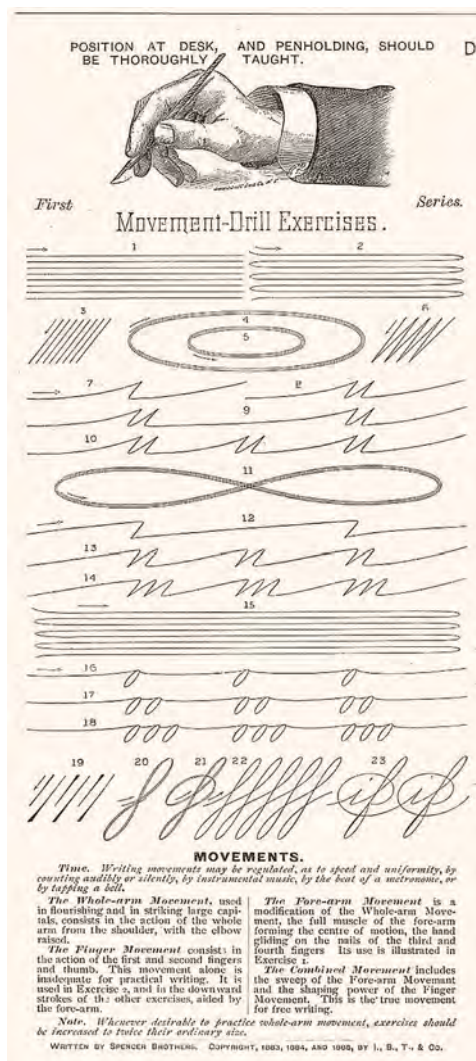 POSITION AT DESK, AND PENHOLDING, SHOULD D
BE THOROUGHLY TAUGHT.
First Series.
Movement-Drill Exercises.
1 2
3 4 6
5
7 8
9
10
11
12
13
14
15
16
17
18
19 20 21 22 23
if if
MOVEMENTS.
Time. Writing movements may be regulated, as to speed and uniformity, by
counting audibly or silently, by instrumental music, by the beat of a metronome, or
by tapping a bell.
The Whole-arm Movement, used
in flourishing and in striking large capi-
tals, consists in the action of the whole
arm from the shoulder, with the elbow
raised.
The Finger Movement consists in
the action of the first and second fingers
and thumb. This movement alone is
inadequate for practical writing. It is
used in Exercise 3, and in the downward
strokes of the other exercises, aided by
the fore-arm.
The Fore-arm Movement is a
modification of the Whole-arm Move-
ment, the full muscle of the fore-arm
forming the centre of motion, the hand
gliding on the nails of the third and
fourth fingers Its use is illustrated in
Exercise 1.
The Combined Movement includes
the sweep of the Fore-arm Movemant
and the shaping power of the Finger
Movement. This is the true movement
for free writing.
Note. Whenever desirable to practice whole-arm movement, exercises should
be increased to twice their ordinary size.
WRITTEN BY SPENCER BROTHERS. COPYRIGHT, 1883, 1884, AND 1885, BY I., B., T., & CO.